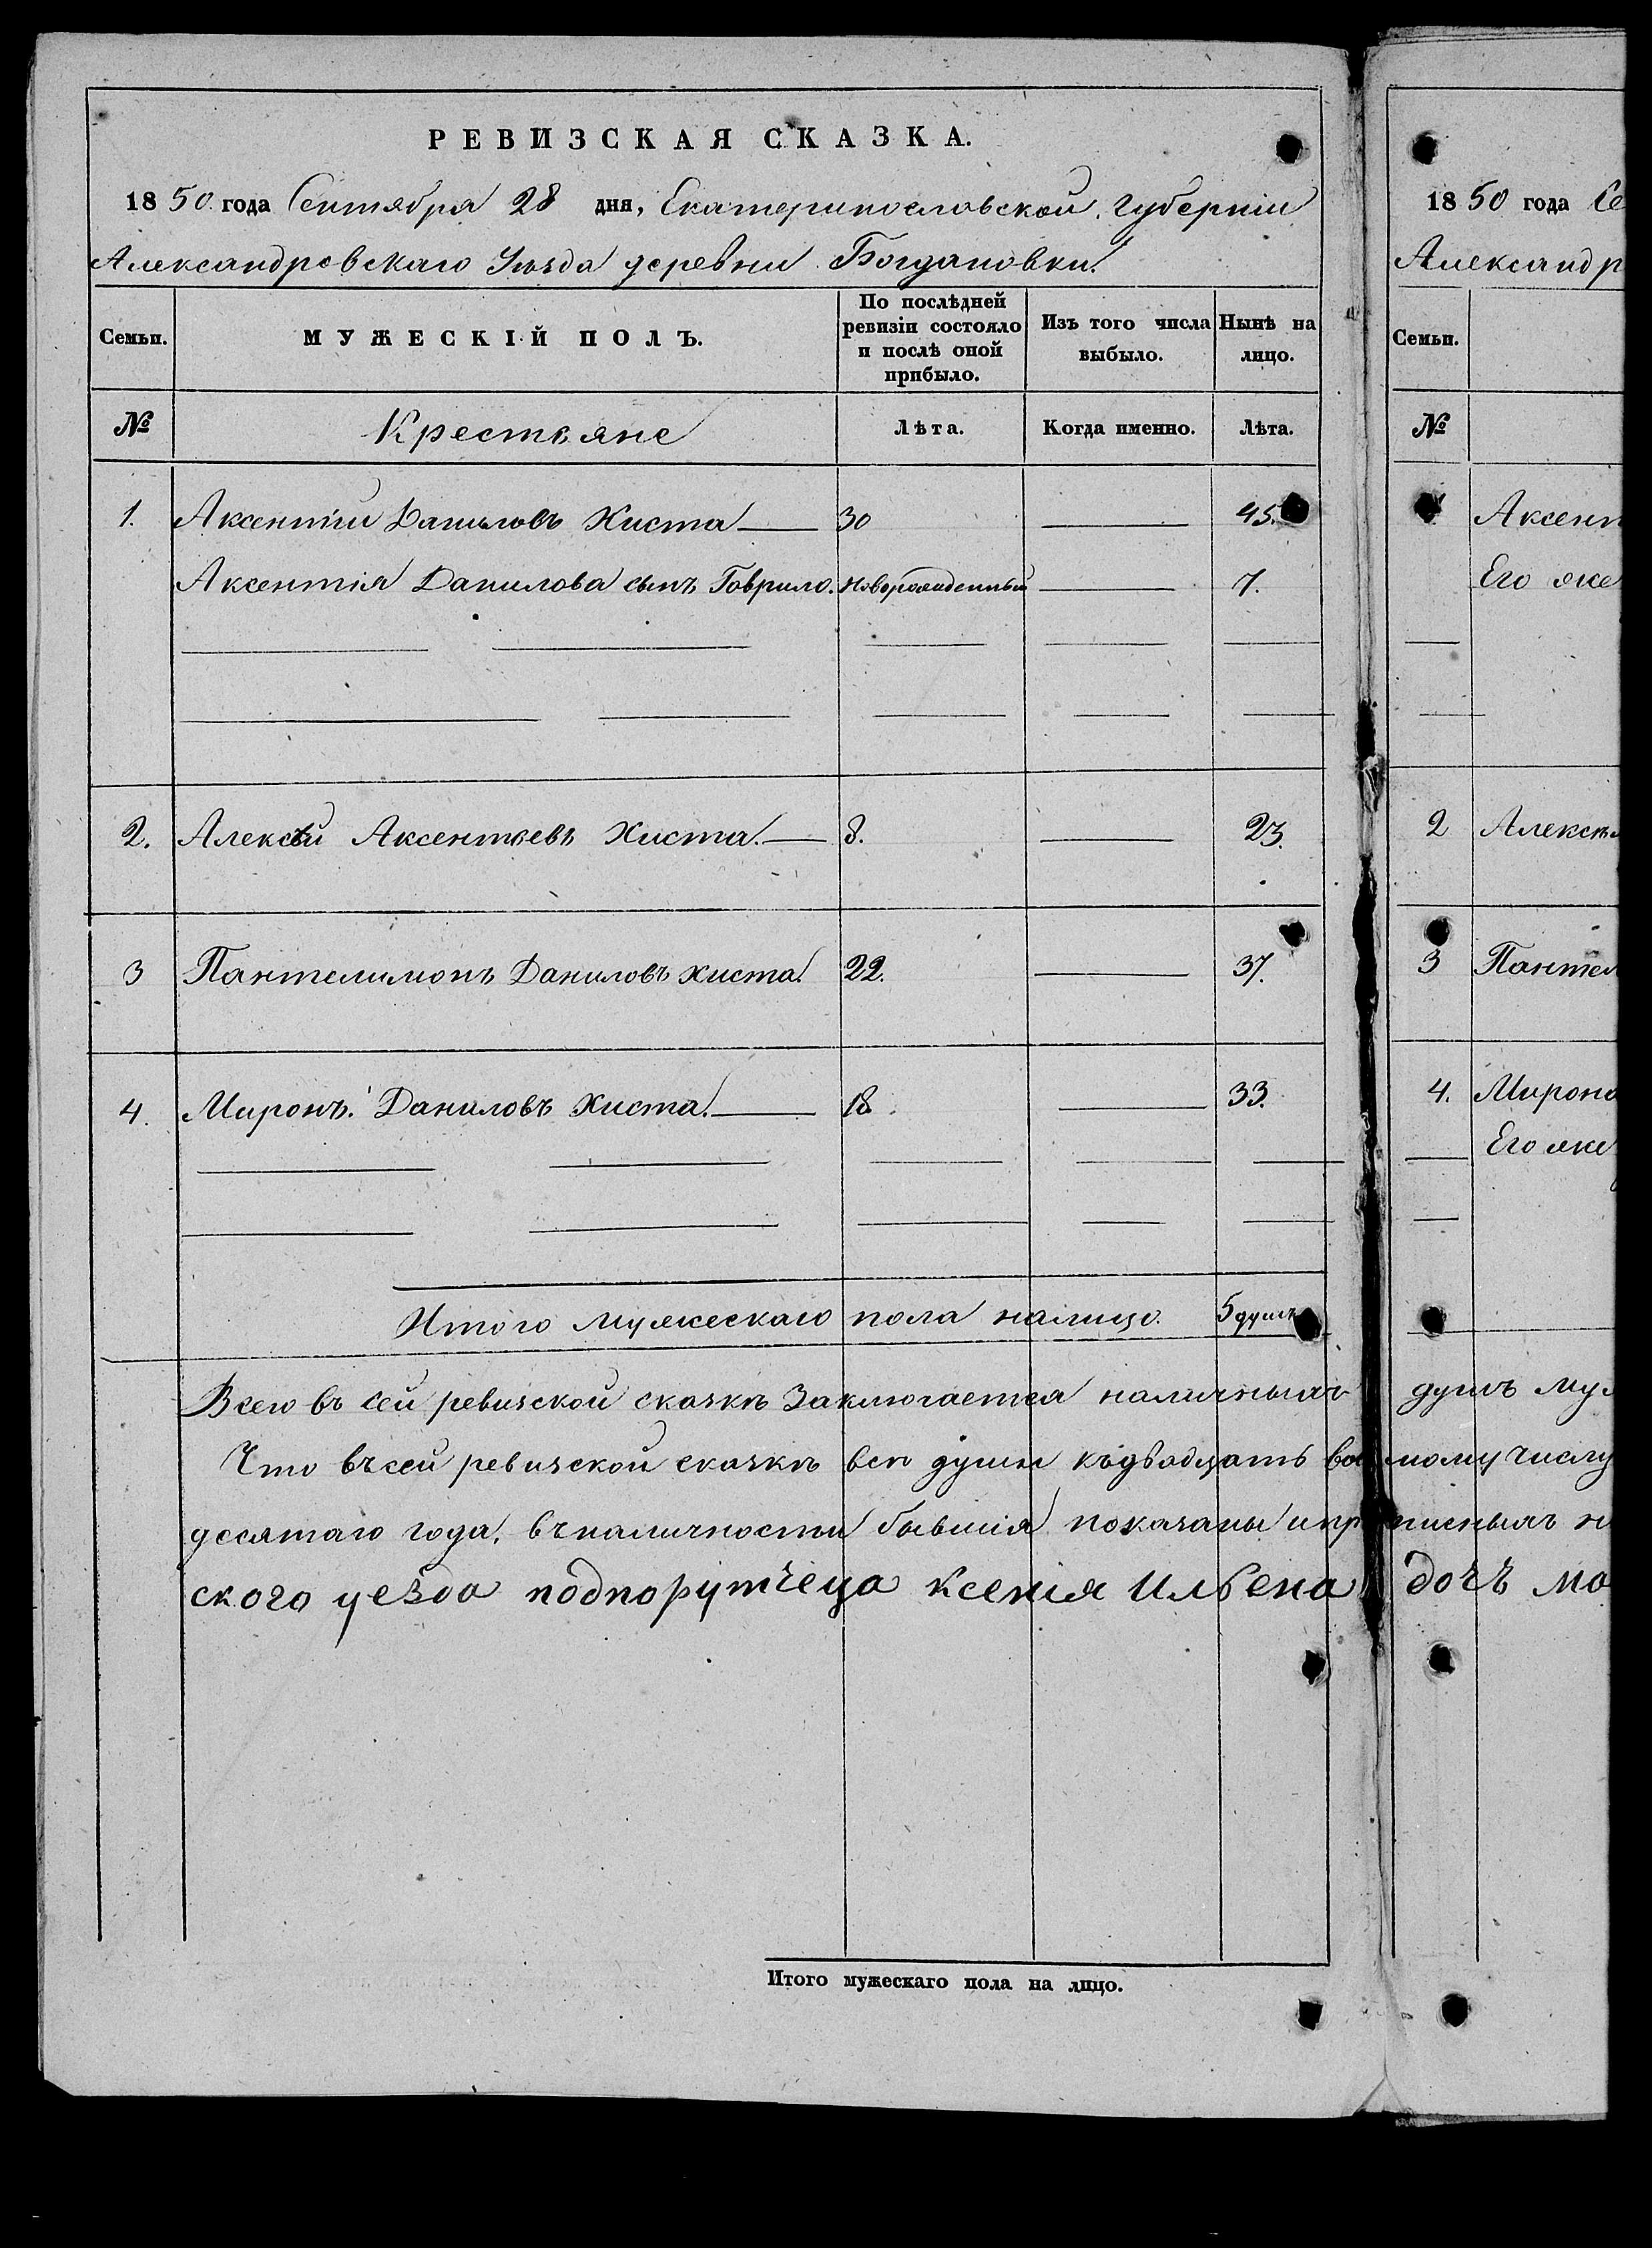 РЕВИЗСКАЯ СКАЗКА.
1850. года Сентября 28 дня, Екатеринославской Губерніи
Александровскаго Уѣзда деревни Богдановки.
Семьи. МУЖЕСКІЙ ПОЛЪ. По послѣдней ревизіи состояло и послѣ оной прибыло. Изъ того числа выбыло. Нынѣ на лицо.
№ Крестьяне Лѣта. Когда именно. Лѣта.
1. Аксентій Даниловъ Хиста 30 45.
Аксентія Данилова сынъ Гаврило. новорожденный 7.
2. Алексѣй Аксентьевъ Хиста. 8. 23.
3 Пантелимонъ Даниловъ хиста. 22. 37.
4. Миронъ. Даниловъ Хиста. 18. 33.
Итого мужескаго пола налицо. 5 душъ
Всего въ сей ревизской сказкѣ Заключается наличныхъ
Что въ сей ревизской сказкѣ всѣ души
десятаго года, въ наличности бывшія показаны
ского уезда подпорутчеца Ксенія Ильена
Итого мужескаго пола на лицо.
1850 года Се
Александр
Семьи.
№
Аксент
Его же
2 Алексѣ
3 Пантел
4. Мирона
Его же
душъ му
мому числу
дочъ мо